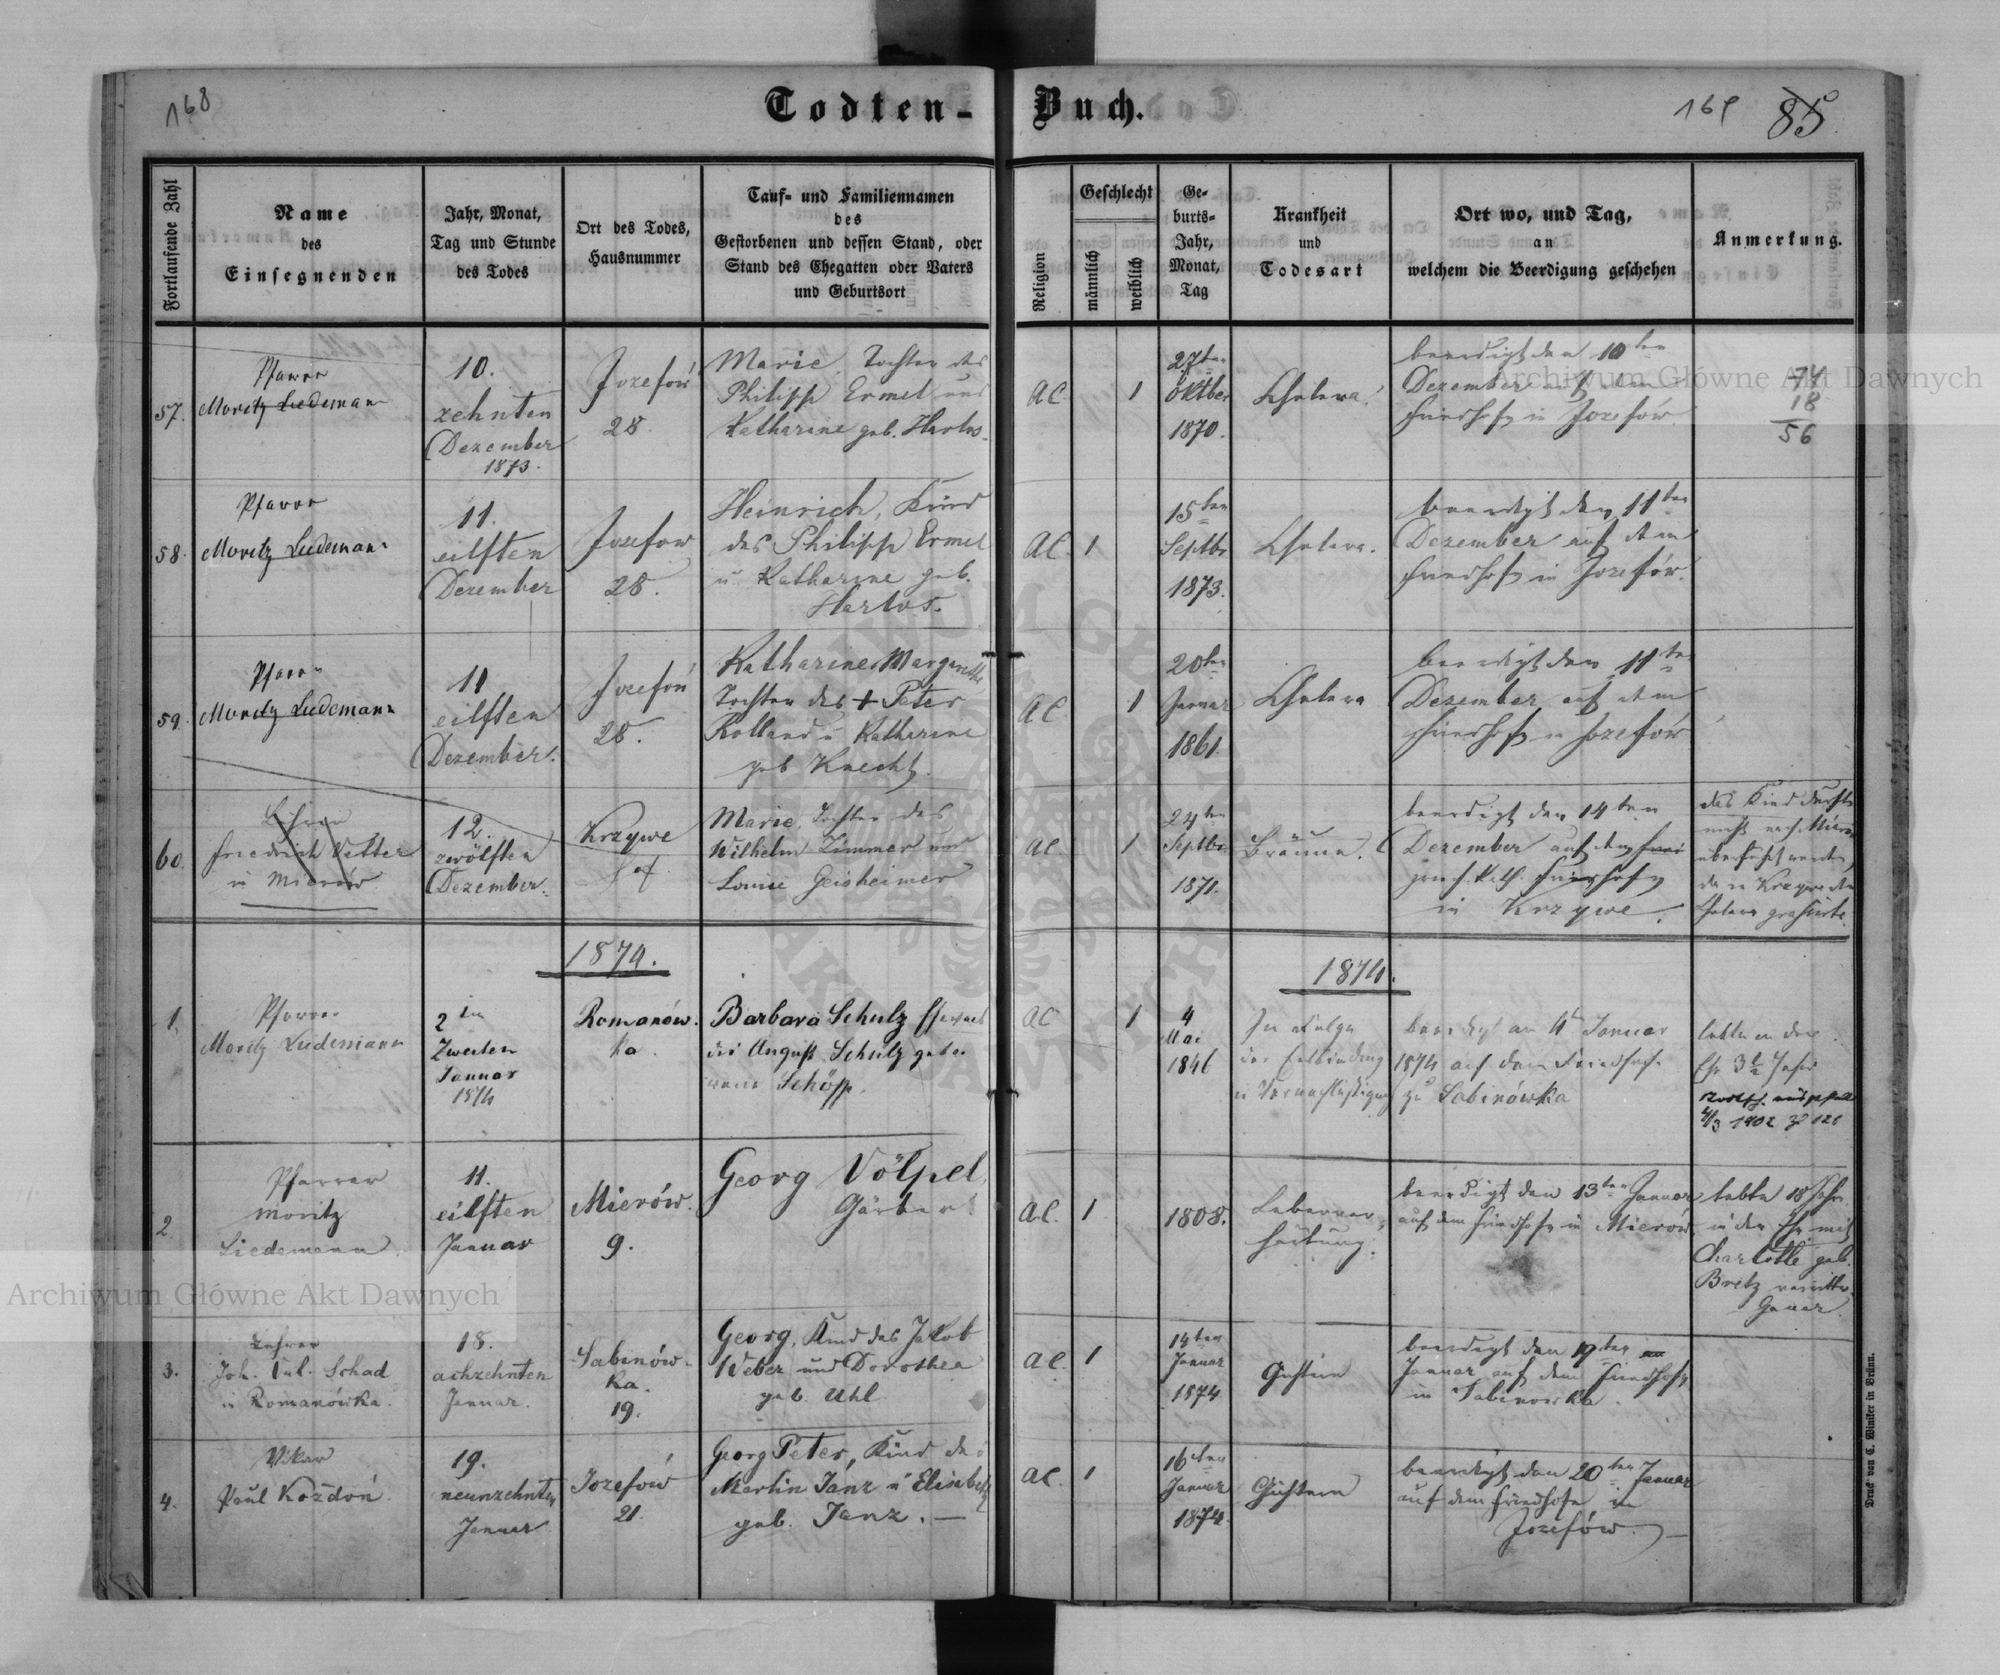 168
Todten-Buch.
169
85
Fortlaufende Zahl
Name
des
Einsegnenden
Jahr, Monat,
Tag und Stunde
des Todes
Ort des Todes,
Hausnummer
Tauf- und Familiennamen
des
Gestorbenen und dessen Stand, oder
Stand des Ehegatten oder Vaters
und Geburtsort
Religion
Geschlecht
männlich
weiblich
Ge-
burts-
Jahr,
Monat,
Tag
Krankheit
und
Todesart
Ort wo, und Tag,
an
welchem die Beerdigung geschehen
Anmerkung.
57.
Pfarrer
Moritz Liedemann
10.
zehnten
Dezember
1873.
Jozefów
28.
Marie, Tochter des
Philipp Ermel und
Katharine geb.
AC.
1
27ten
Oktber
1870.
Cholera.
beerdigt den 10ten
Dezember auf dem
Friedhofe in Jozefów
74
18
56
58.
Pfarrer
Moritz Liedemann
11.
eilften
Dezember
Jozefow
28.
Heinrich, Kind
des Philipp Ermel
u Katharine geb.
Hartos.
AC.
1
15ten
Septbr
1873.
Cholera.
beerdigt den 11ten
Dezember auf dem
Friedhofe in Jozefów.
59.
Pfarrer
Moritz Liedemann
11
eilften
Dezember.
Jozefów
28.
Katharine Margarethe,
Tochter des + Peter
Rolland u Katharine
geb Knecht.
AC
1
20ten
Januar
1861.
Cholera
beerdigt den 11ten
Dezember auf dem
Friedhofe in Jozefów
60.
Lehrer
Friedrich Vetter
in Mierów
12.
zwölften
Dezember.
Krzywe
Marie, Tochter des
Wilhelm Zimmer und
Louise Geisheimer
AC.
1
24ten
Septbr
1871.
Bräune.
beerdigt den 14ten
Dezember auf dem
Friedhofe
in Krzywe.
das Kind durfte
nicht nach
überführt werden,
da in Krzywe die
Cholera grasirte.
1874.
1874.
1.
Pfarrer
Moritz Liedemann
2ten
Zweiten
Januar
1874
Romanów-
ka.
Barbara Schulz Ehefrau
des August Schulz gebo-
rene Schöpp.
AC
1
4
Mai
1846
In Folge
der Entbindung
u Vernachläßigung
beerdigt am 4t Januar
1874 auf dem Friedhofe
zu Sabinówka
lebte in der
Ehe 3½ Jahre
4/3 1902
2.
Pfarrer
Moritz
Liedemann.
11.
eilften
Januar
Mierów.
9.
Georg Völpel,
Gärber.
AC.
1
1808.
Leberver-
härtung.
beerdigt den 13ten Januar
auf dem Friedhofe in Mierów
lebte 18 Jahre
in der Ehe mit
Charlotte geb.
Bretz
3.
Lehrer
Joh. Val. Schad
in Romanówka.
18.
achzehnten
Januar.
Sabinów-
ka.
19.
Georg, Kind des Jakob
Weber und Dorothea
geb. Uhl
AC.
1
14ten
Januar
1874
Gichtern
beerdigt den 19ten
Januar auf dem Friedhofe
in Sabinowka.
4.
Vikar
Paul Kozdoń.
19.
neunzehnten
Januar
Jozefów
21.
Georg Peter, Kind des
Martin Janz u Elisabeth
geb. Janz. —
AC.
1
16ten
Januar
1874.
Gichtern
beerdigt den 20ten Januar
auf dem Friedhofe in
Jozefów. —
Druck von C. Winiker in Brünn.
Archiwum Główne Akt Dawnych
Archiwum Główne Akt Dawnych